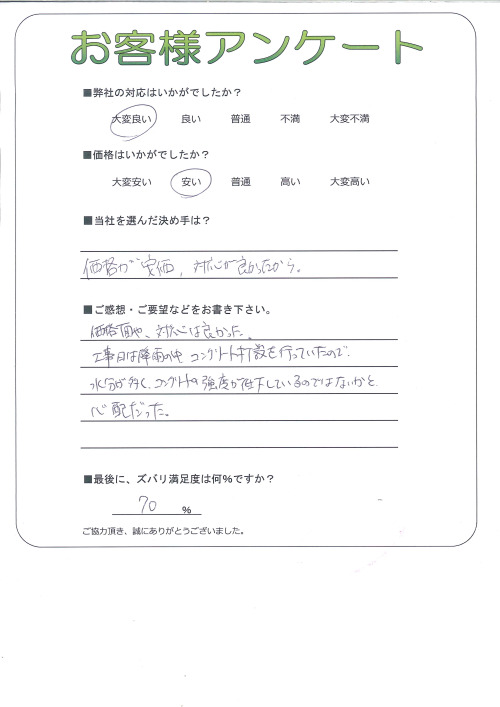 お客様アンケート
■弊社の対応はいかがでしたか？
大変良い 良い 普通 不満 大変不満
■価格はいかがでしたか？
大変安い 安い 普通 高い 大変高い
■当社を選んだ決め手は？
価格が安価，対応が良かったから。
■ご感想・ご要望などをお書き下さい。
価格面や、対応は良かった、
工事日は降雨の中コンクリート打設を行っていたので、
水分が多く、コンクリートの強度が低下しているのではないかと
心配だった。
■最後に、ズバリ満足度は何％ですか？
70 ％
ご協力頂き、誠にありがとうございました。